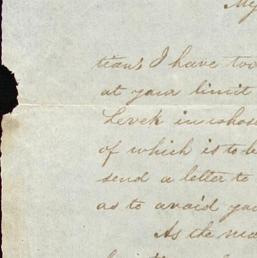 My
tians I have too
at your limit
Levek in whose
of which is to be
send a letter to
as to avoid you
As the ma